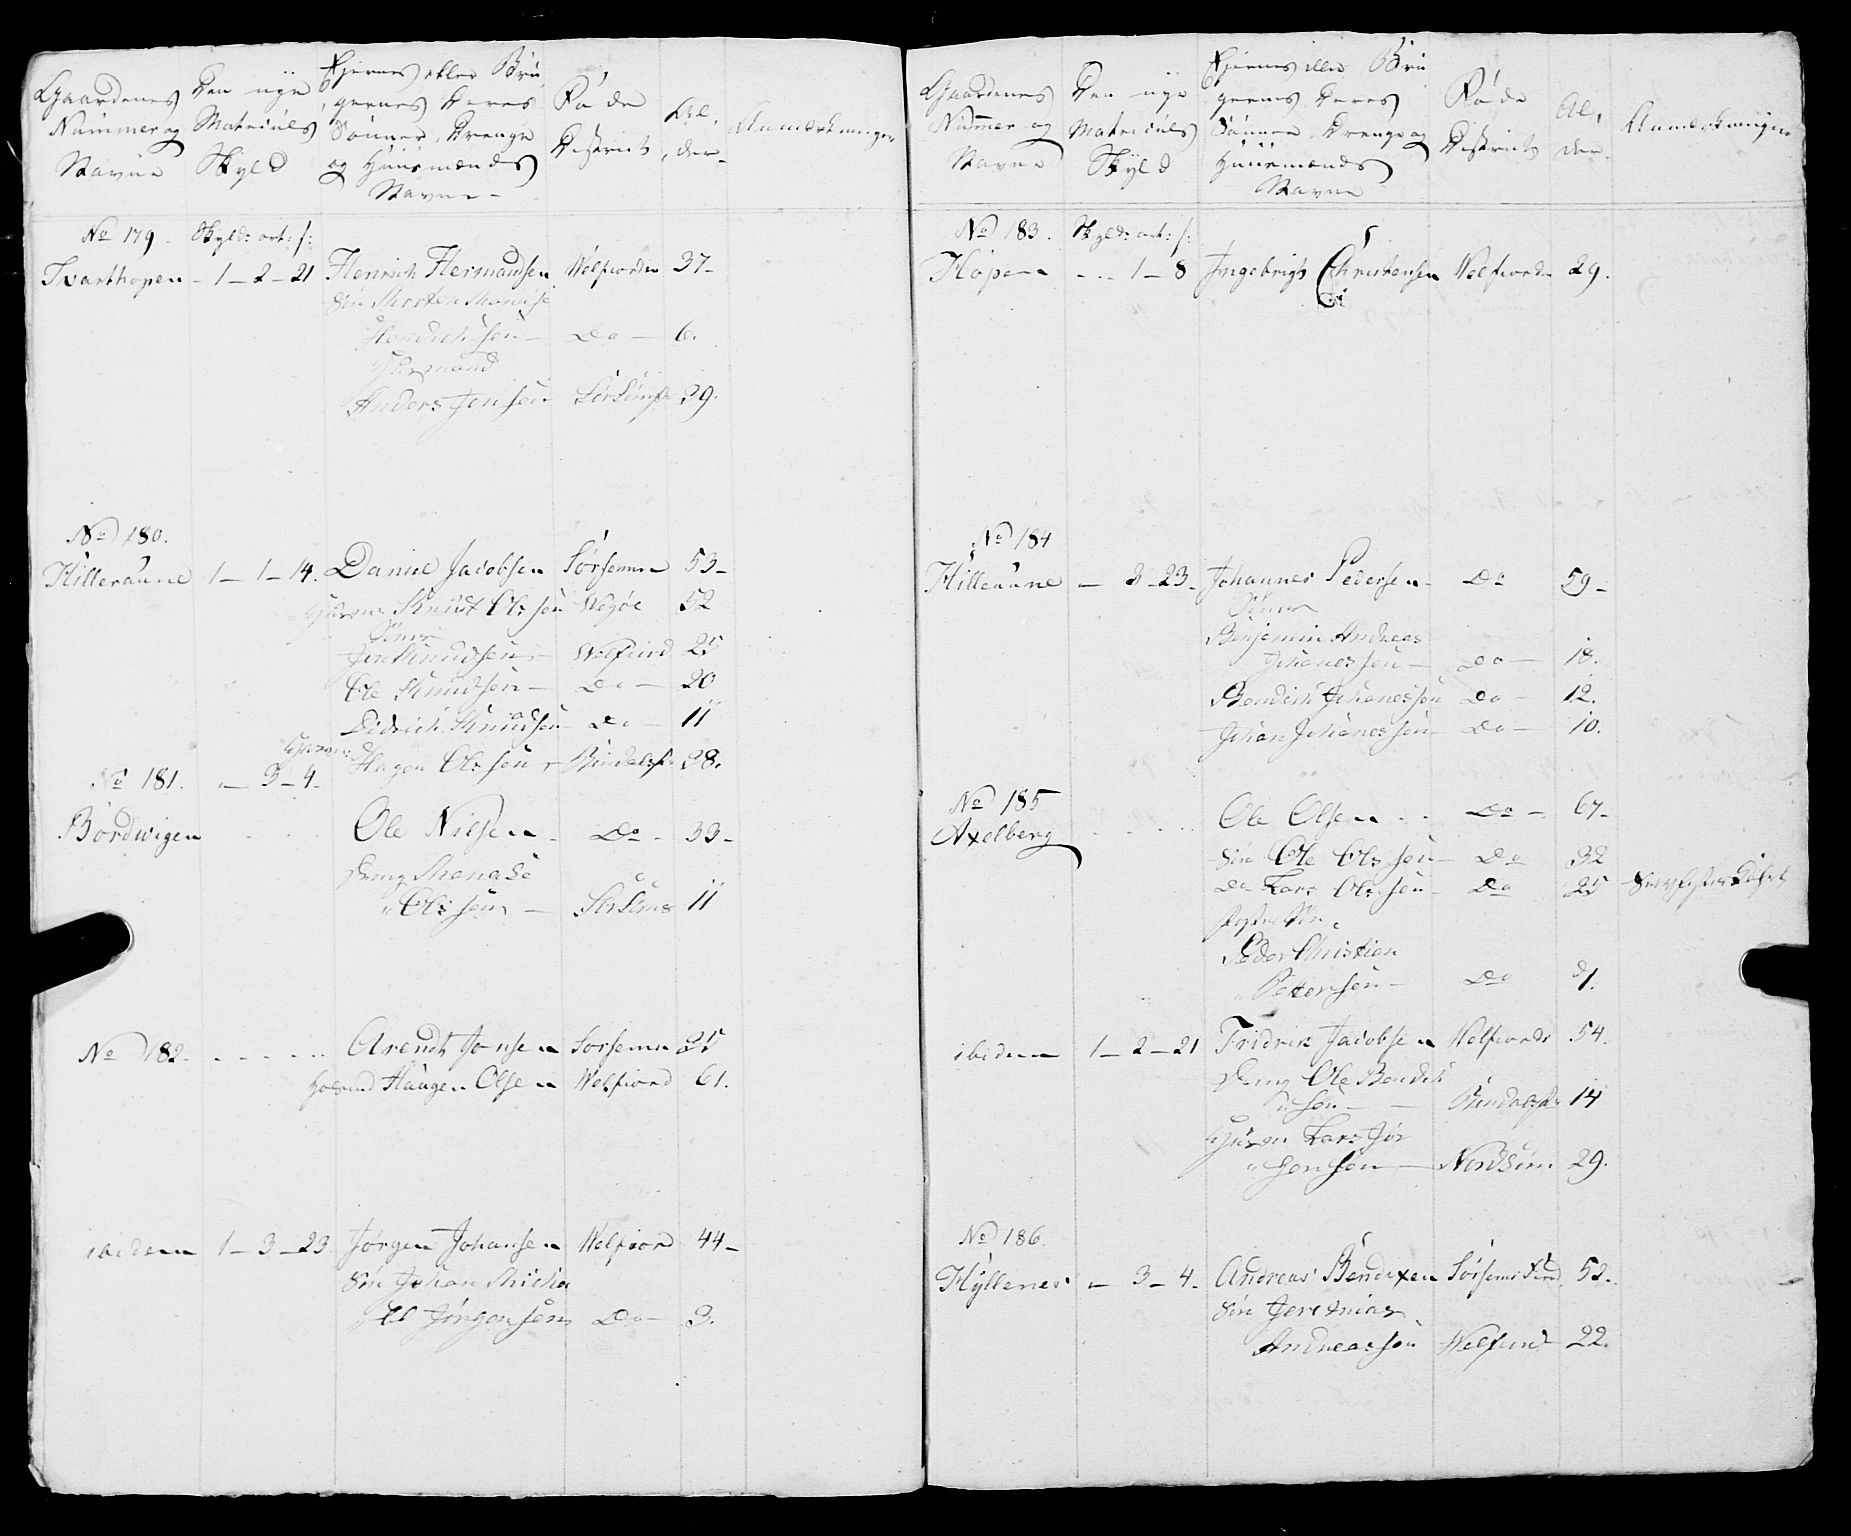 Gaardenes
Nummer og
Navne
Den nÿe
Matriculs
Skyld
Ejernes eller Bru
gernes Deres
Sönner, Drenge
og Huusmænds
Navne
Fødde
District
Al,
der
Anmærkninger
No 179. Skyld: ort: s:
Tvarthopen - 1 - 2 - 21 Henrich Hermandsen Welfiorden 37 -
Sön
Hendrichsen - Do - 6.
Huusmand
Anders Jensen 39.
No 180.
Hilleraune 1 - 1 - 14. Daniel Jacobsen Sørsemn 53 -
Knudt Olssen Wegöe 52
Sönner
Knudsen - Welfiord 25
Ole Knudsen - Do - 20
Didrich Knudsen - Do - 11
Hagen Olssen - Bindals 38.
No 181. - 3 - 4 -
Bordwigen Ole Nilsen - Do - 33 -
Dreng
Olssen - 11
No 182 - Arendt Jonsen Sorsemn 35
Haagen Olsen Welfiord 61.
ibidem 1 - 3 - 23. Jørgen Johansen Welfiord 44 -
Sön Johan Micha
el Jörgensen Do - 3.
Gaardenes
Nummer og
Navne
Den nÿe
Matriculs
Skÿld
Ejernes eller Bru
gernes Deres
Sönner, Drenge og
Huusmænds
Navne
Fødde
District
Al,
der.
Anmærkninger
No 183. Skyld: ort: s:
Hopen - - 1 - 8 Ingebrigt Christensen Welfiorden 29.
No 184
Hilleraune - 3 - 23 - Johannes Pedersen - Do 59 -
Sönner
Benjamin Andreas
Johanessen - Do - 18.
Bendich Johanessen Do - 12.
Johan Johanessen - Do - 10.
No 185
Axelberg Ole Olsen Do - 67 -
Sön Ole Olssen - Do 32
Do Lars Olssen - Do 25
Sön
Peder Christian
Petersen - Do
ibidem 1 - 2 - 21 Fridrik Jacobsen Welfiord 54.
Dreng Ole Bendik
sen - Bindals 14
Lars Jör
gensen - Nordsøm 29.
No 186.
Hyllenes - 3 - 4 - Andreas Bendixen 52.
Sön Jeremias
Andreassen Welfiord 22.